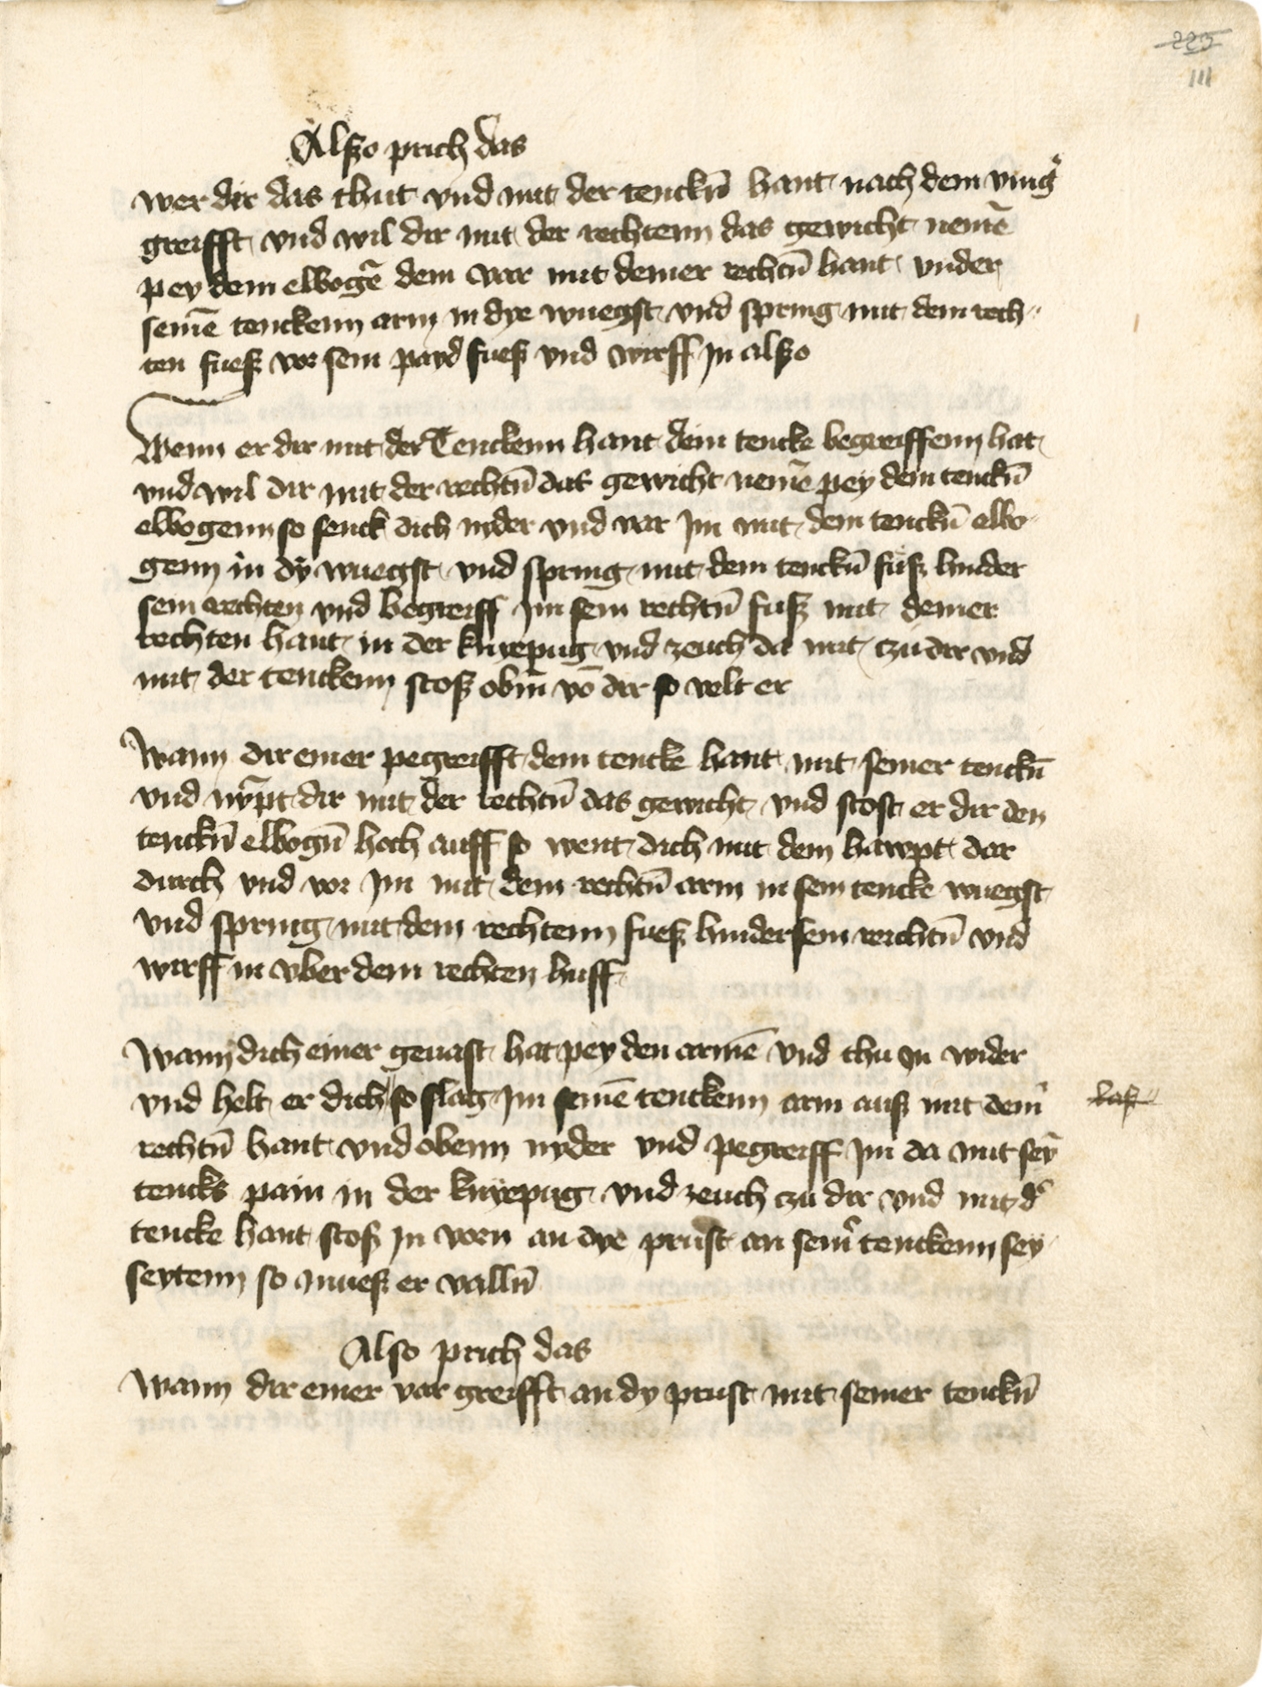 223
111
Alßo prich das
wer dir das thut vnd mit der tenckñ hant nach dem ving̃
greifft vnd wil dir mit der rechtenn das gewicht nemẽ
pey dem elbogẽ dem var mit deiner rechtñ hant vnder
seinẽ tenckenn arm in dye wuegst vnd spring mit dem rech-
ten fueß vor sein payd fueß vnd wirff jn alßo
Wenn er dir mit der Tenckenn hant dein tencke begreiffenn hat
vnd wil dir mit der rechtñ das gewicht nemẽ pey dem tenckñ
elbogenn so senck dich nyder vnd var jm mit dem tenckñ elbo-
genn in dÿ wuegst vnd spring mit dem tenckñ fuß hinder
sein rechten vnd begreiff jm sein rechtñ fuß mit deiner
rechten hant in der knyepug vnd zeuch da mit czu dir vnd
mit der tenckenn stoß obiñ võ dir so velt er
Wann dir einer pegreifft dein tencke hant mit seiner tenckñ
vnd nÿpt dir mit der rechtñ das gewicht vnd stost er dir den
tenckñ elbogñ hoch auff so went dich mit dem hawpt dar
durch vnd vor jm mit dem rechtñ arm in sein tencke wuegst
vnd spring mit dem rechtenn fueß hinder sein reichtñ vnd
wirff in vber dein rechten huff
Wann dich einer geuast hat pey den armẽ vnd thu jn wider
vnd helt er dich so slag jm seinẽ tenckenn arm auß mit dein̄
rechtñ hant vnd obenn nyder vnd pegreiff jm da mit seȳ
tencks pain in der knyepug vnd zeuch czu dir vnd mit d̾
tencke hant stoß jn vorn an dye prust an sein̄ tenckenn sey
seytenn so mueß er vallñ
laß
Also prich das
Wann dir einer vor greifft an dy prust mit seiner tenckñ